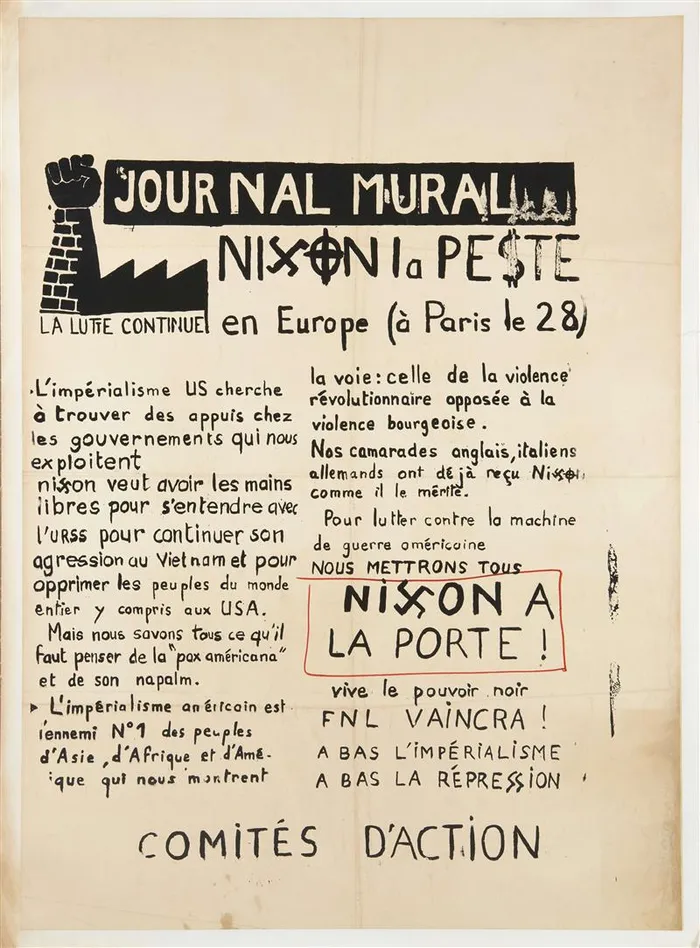 JOURNAL MURAL
NIXON la PE$TE
LA LUTTE CONTINUE
en Europe (à Paris le 28)
L'impérialisme US cherche
à trouver des appuis chez
les gouvernements qui nous
exploitent
nixon veut avoir les mains
libres pour s'entendre avec
l'URSS pour continuer son
agression au Vietnam et pour
opprimer les peuples du monde
entier y compris aux USA.
Mais nous savons tous ce qu'il
faut penser de la "pax américana"
et de son napalm.
L'impérialisme américain est
l'ennemi N°1 des peuples
d'Asie, d'Afrique et d'Amé-
ique qui nous montrent
la voie: celle de la violence
révolutionnaire opposée à la
violence bourgeoise.
Nos camarades anglais, italiens
allemands ont déjà reçu Nixon,
comme il le mérite.
Pour lutter contre la machine
de guerre américaine
NOUS METTRONS TOUS
NIXON A
LA PORTE !
vive le pouvoir noir
FNL VAINCRA !
A BAS L'IMPÉRIALISME
A BAS LA RÉPRESSION
COMITÉS D'ACTION